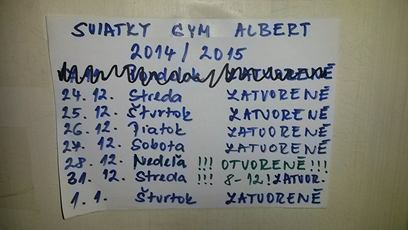 SVIATKY GYM ALBERT
2014/2015
24.12. Streda ZATVORENÉ
25.12. Štvrtok ZATVORENÉ
26.12. Piatok ZATVORENÉ
27.12. Sobota ZATVORENÉ
28.12. Nedeľa !!! OTVORENÉ!!!
31.12. Streda !!! 8-12! ZATVOR.
1.1. Štvrtok ZATVORENÉ